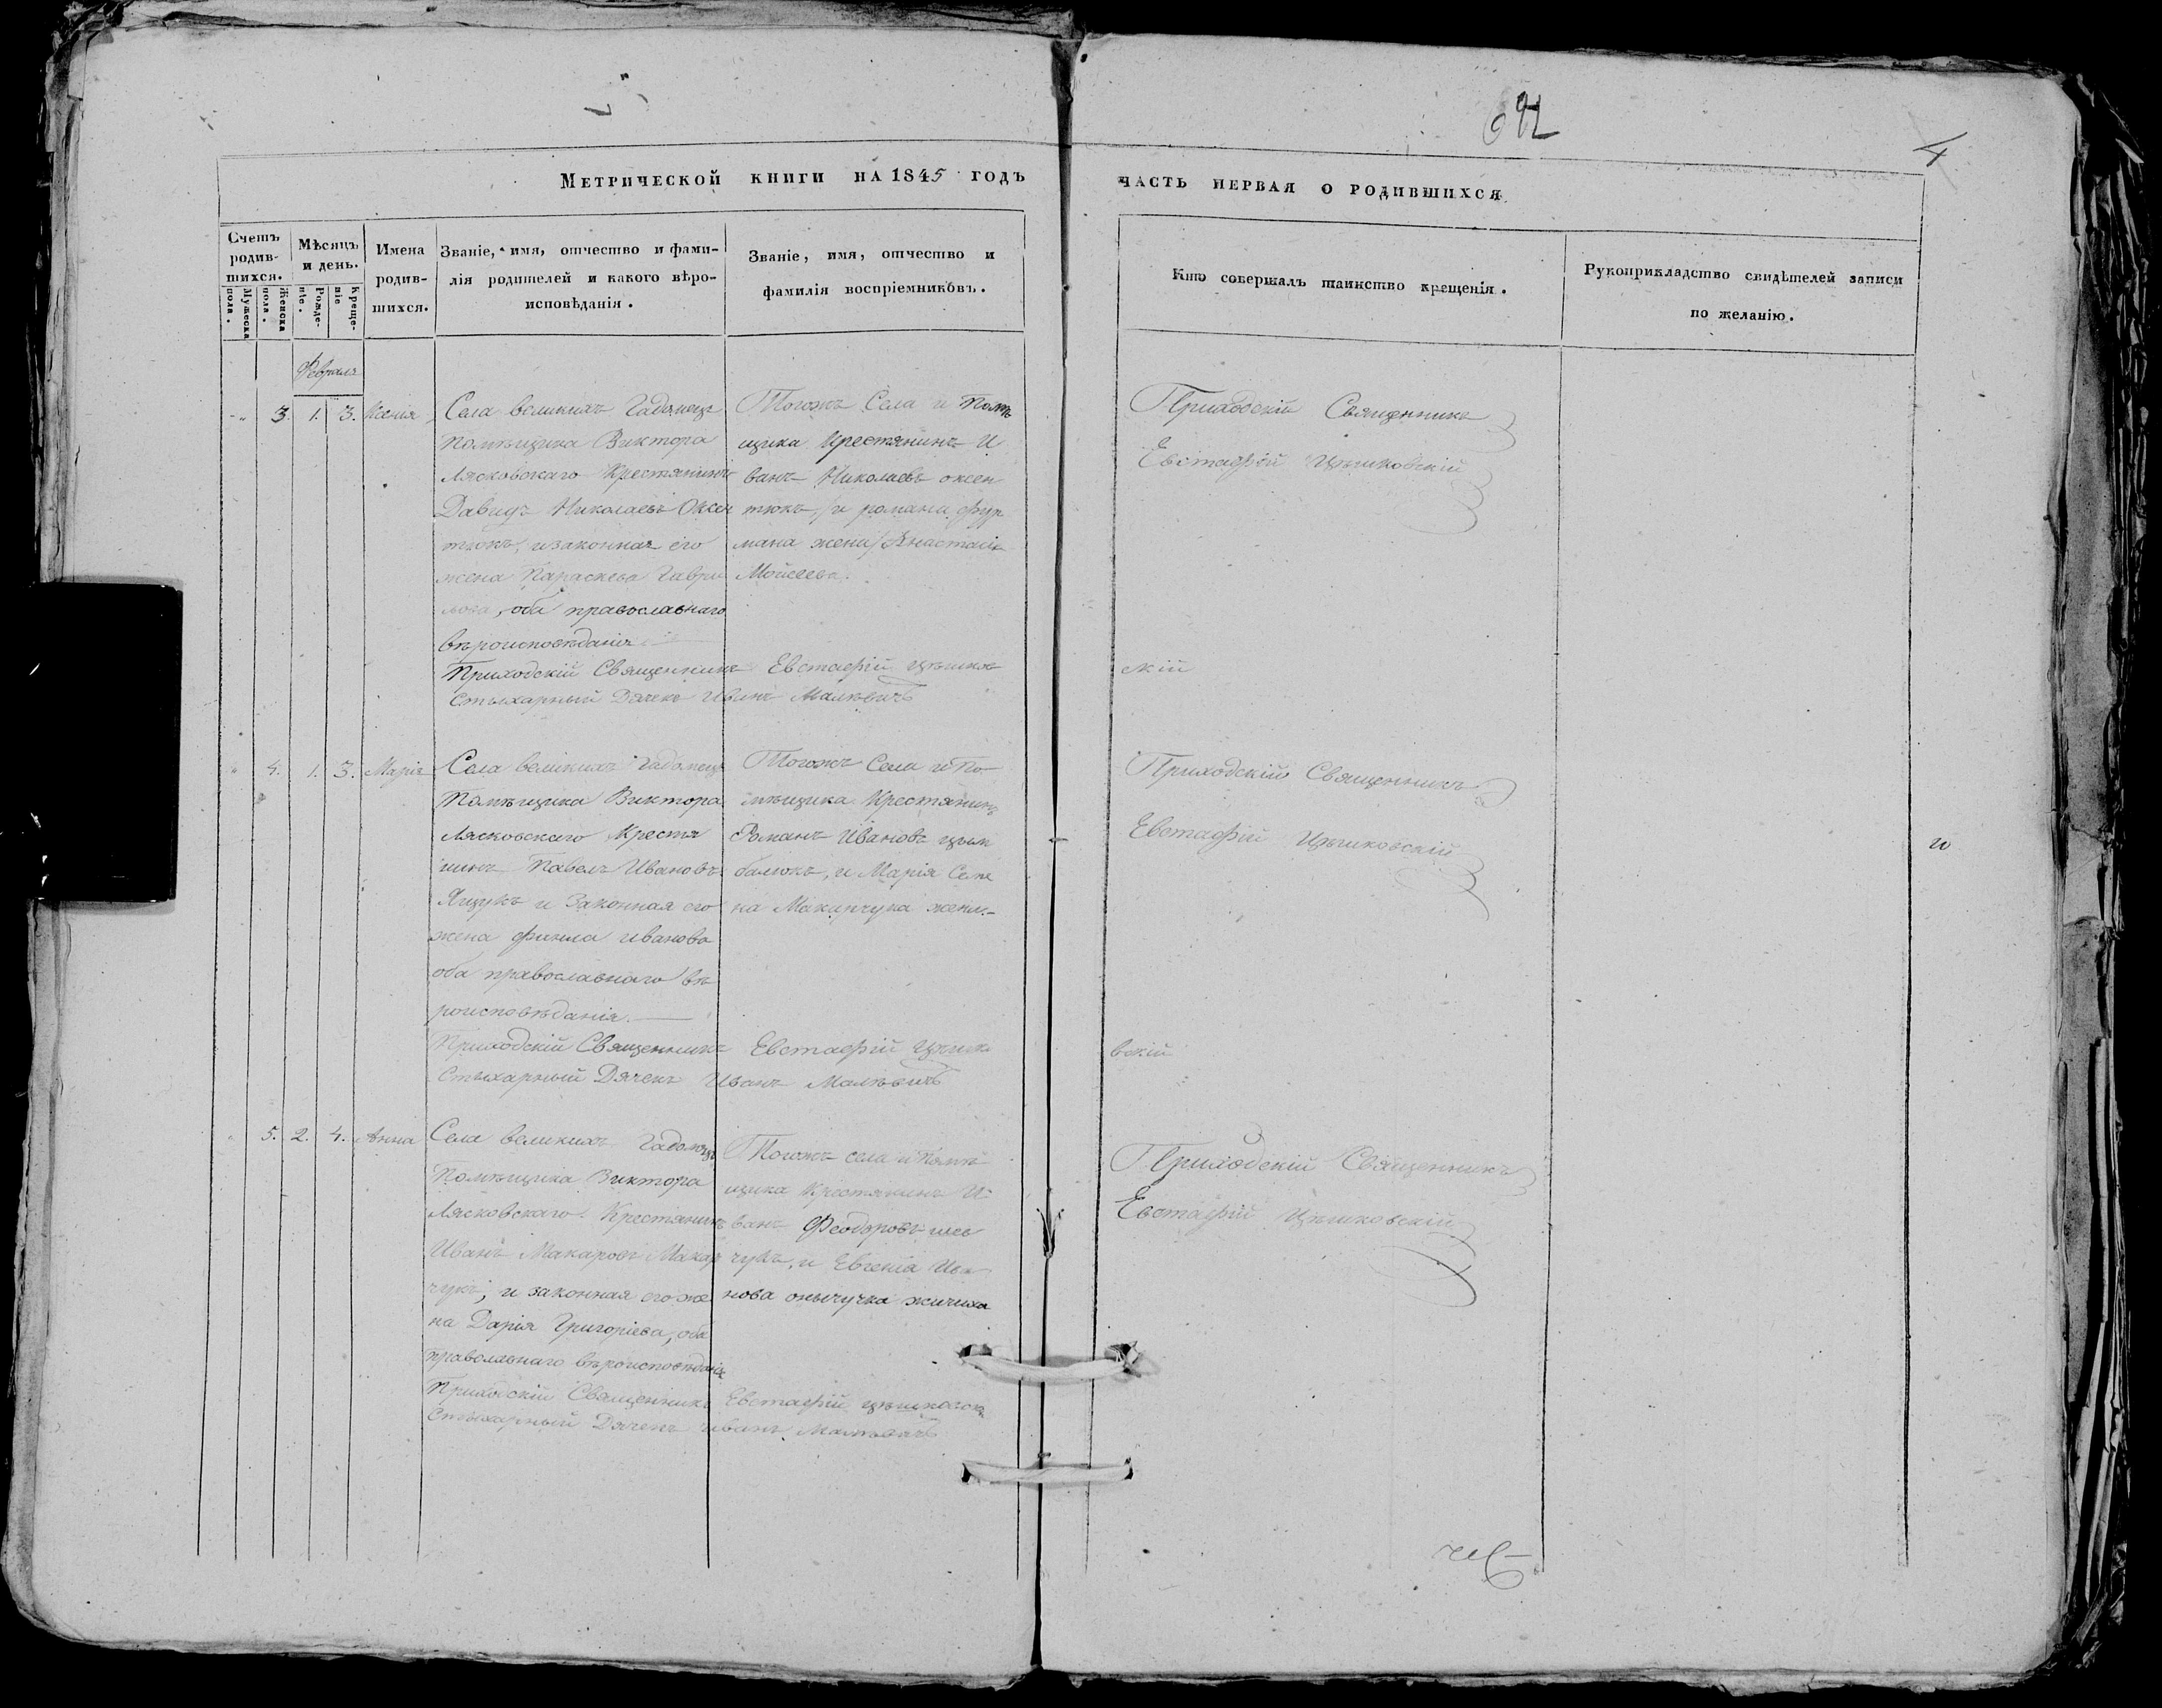 692
4
Метрической книги на 1845 годъ
часть первая о родившихся
Счетъ родив-шихся.
Мужеска пола.
Женска пола.
Мѣсяцъ и день.
Рожде-нiе.
Креще-нiе
Имена родив-шихся.
Званiе, имя, отчество и фами-
лiя родителей и какого вѣро-
исповѣданiя.
Званiе, имя, отчество и
фамилiя воспрiемниковъ.
Кто совершалъ таинство крещенiя.
Рукоприкладство свидѣтелей записи
по желанiю.
Февраля
3. 1. 3. Ксенія
Села великихъ Гадомецъ
Помѣщика Виктора
Лясковскаго Крестянинъ
Давидъ Николаевъ Оксен
тюкъ, и законная его
жена Параскева Гаври
лова, оба православнаго
вѣроисповѣданія
Тогожъ Села и Помѣ
щика Крестянинъ И
ванъ Николаевъ оксен
тюкъ, и романа фур
мана жена Анастасія
Мойсеева.
Приходскій Священникъ
Евстафій Цѣшковскій
Приходскій Священникъ Евстафій Цѣшков
скій
Стыхарный Дячекъ Иванъ Малѣвичъ
4. 1. 3. Марія
Села великихъ Гадомецъ
Помѣщика Виктора
Лясковскаго Крестя
нинъ Павелъ Ивановъ
Ящукъ и Законная его
жена Фенна иванова
оба православнаго вѣ
роисповѣданія.
Тогожъ Села и По-
мѣщика Крестянинъ
Романъ Ивановъ цым
балюкъ, и Марія Семе
на Макарчука жена.
Приходскій Священникъ
Евстафій Цѣшковскій
Приходскій Священникъ Евстафій Цѣшко
вскій
Стыхарный Дячекъ Иванъ Малѣвичъ
5. 2. 4. Анна
Села великихъ Гадомецъ
Помѣщика Виктора
Лясковскаго Крестянинъ
Иванъ Макаровъ Макар
чукъ; и законная его же
на Дарія Григоріева, оба
православнаго вѣроисповѣданія
Тогожъ села и Помѣ
щика Крестянинъ И
ванъ Феодоровъ шев
чукъ, и Евгенія Ива
нова
Приходскій Священникъ
Евстафій Цѣшковскій
Приходскій Священникъ Евстафій Цѣшковскі
Стыхарный Дячекъ иванъ Малѣвичъ